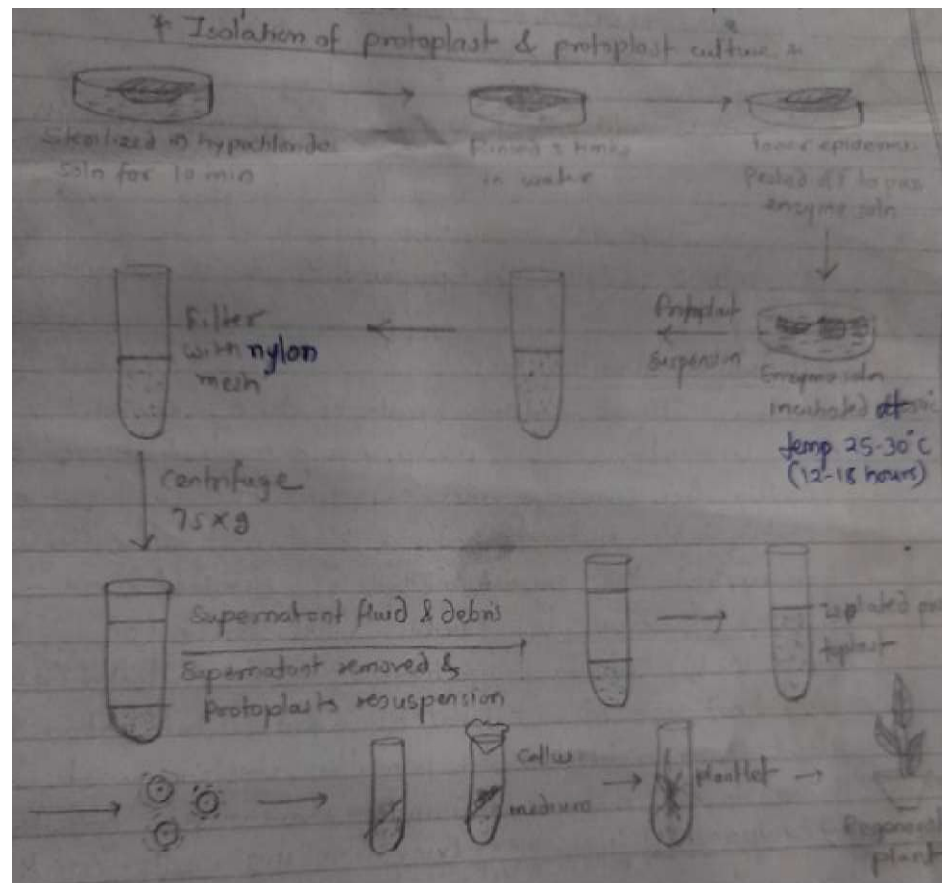 * Isolation of protoplast & protoplast culture *
Sterilized in hypochloride
Soln for 10 min
Rinsed 3 times
in water
lower epidermis
Peeled off to pass
enzyme soln
Filter
with nylon
mesh
Protoplast
suspension
Enzyme soln
incubated at
temp 25-30°C
(12-18 hours)
Centrifuge
75xg
Supernatant fluid & debris
Supernatant removed &
Protoplasts resuspension
toplast
callus
medium
plantlet
plant